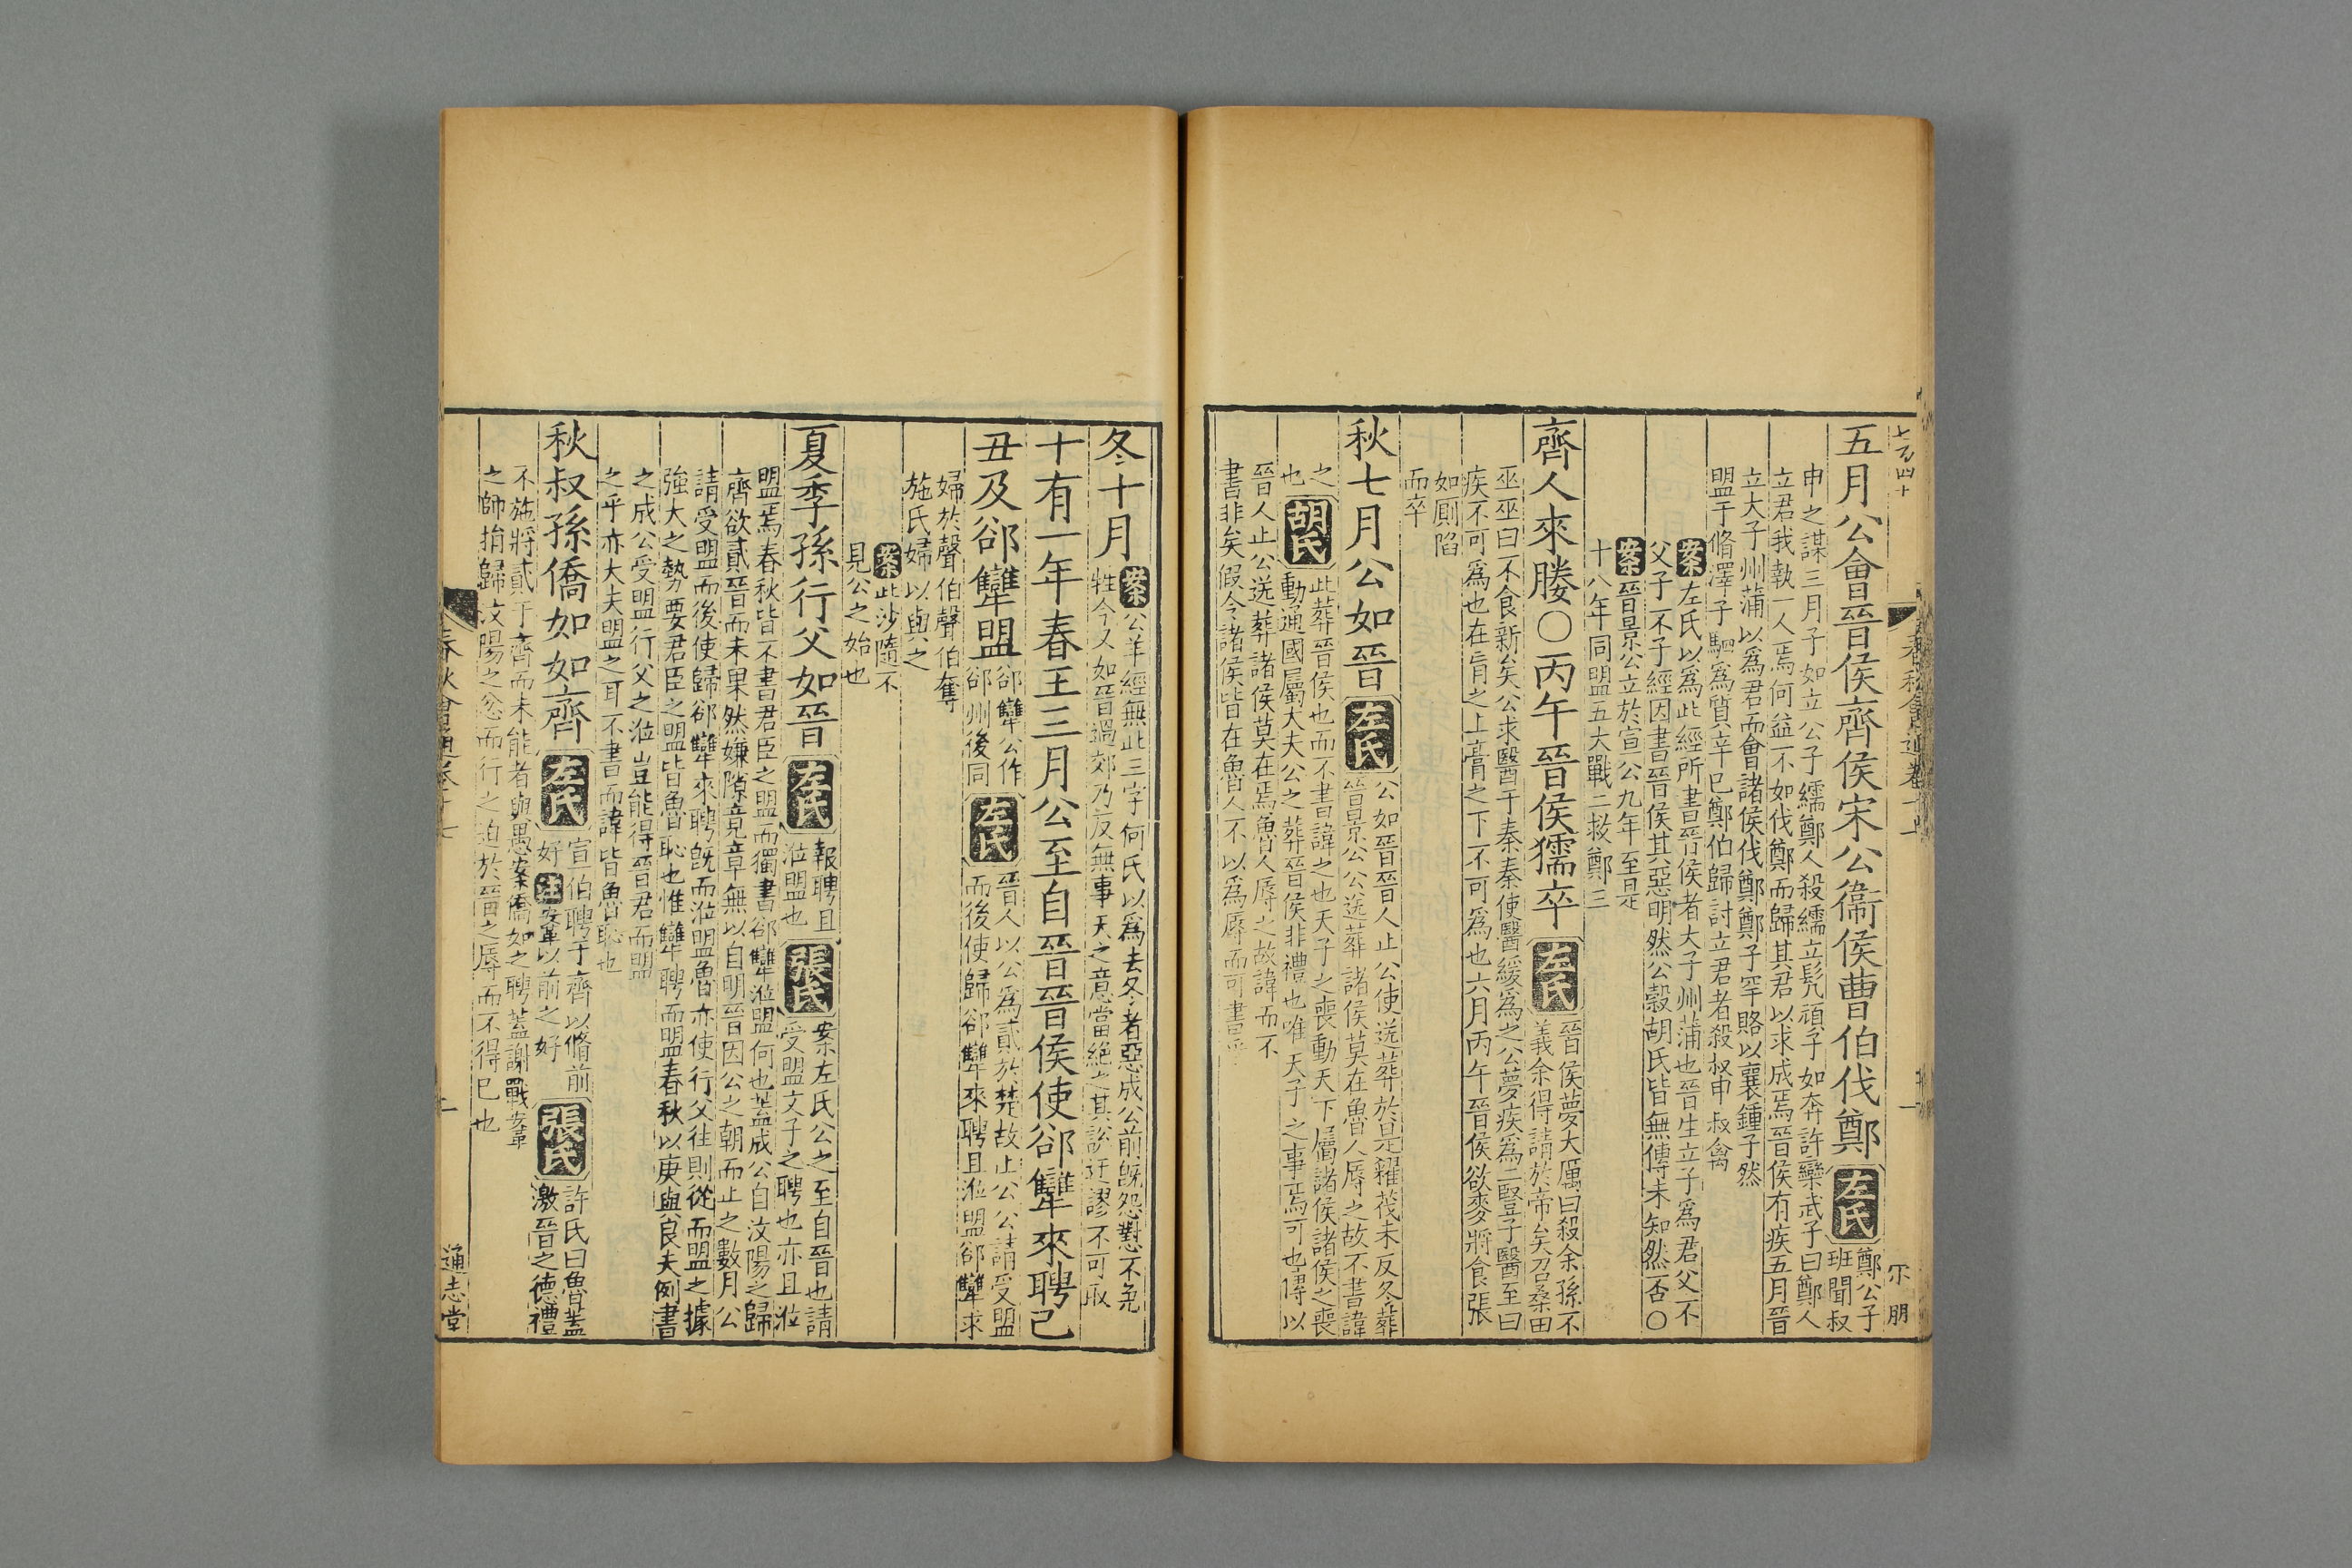 五月公會晉侯齊侯宋公衞侯曹伯伐鄭 左氏 鄭公子
班聞叔
申之謀三月子如立公子繻鄭人殺繻立髠頑子如奔許欒武子曰鄭人
立君我執一人焉何益不如伐鄭而歸其君以求成焉晉侯有疾五月晉
立大子州蒲以爲君而會諸侯伐鄭鄭子罕賂以襄鍾子然
盟于脩澤子駟爲質辛巳鄭伯歸討立君者殺叔申叔禽
案 左氏以爲此經所書晉侯者大子州蒲也晉生立子爲君父不
父子不子經因書晉侯其惡明然公穀胡氏皆無傳未知然否〇
案 晉景公立於宣公九年至是
十八年同盟五大戰二救鄭三
齊人來媵〇丙午晉侯獳卒 左氏 晉侯夢大厲曰殺余孫不
義余得請於帝矣召桑田
巫巫曰不食新矣公求醫于秦秦使醫緩爲之公夢疾爲二豎子醫至曰
疾不可爲也在肓之上膏之下不可爲也六月丙午晉侯欲麥將食張
如厠陷
而卒
秋七月公如晉 左氏 公如晉晉人止公使送葬於是糴茷未反冬葬
晉景公公送葬諸侯莫在魯人辱之故不書諱
之
也 胡氏 此葬晉侯也而不書諱之也天子之喪動天下屬諸侯諸侯之喪
動通國屬大夫公之葬晉侯非禮也唯天子之事焉可也傳以
晉人止公送葬諸侯莫在焉魯人辱之故諱而不
書非矣假令諸侯皆在魯人不以爲辱而可書乎
冬十月 案 公羊經無此三字何氏以爲去冬者惡成公前既怨懟不免
牲今又如晉過郊乃反無事天之意當絶之其說迂謬不可取
十有一年春王三月公至自晉晉侯使郤犫來聘己
丑及郤犫盟 郤犫公作
郤州後同 左氏 晉人以公爲貳於楚故止公公請受盟
而後使歸郤犫來聘且涖盟郤犫求
婦於聲伯聲伯奪
施氏婦以與之
案 此沙隨不
見公之始也
夏季孫行父如晉 左氏 報聘且
涖盟也 張氏 案左氏公之至自晉也請
受盟文子之聘也亦且涖
盟焉春秋皆不書君臣之盟而獨書郤犫涖盟何也蓋成公自汶陽之歸
齊欲貳晉而未果然嫌隙竟章無以自明晉因公之朝而止之數月公
請受盟而後使歸郤犫來聘既而涖盟魯亦使行父往則從而盟之據
強大之勢要君臣之盟皆魯恥也惟犫聘而盟春秋以庚與良夫例書
之成公受盟行父之涖豈能得晉君而盟
之乎亦大夫盟之耳不書而諱皆魯恥也
秋叔孫僑如如齊 左氏 宣伯聘于齊以脩前
好 注 鞌以前之好 張氏 許氏曰魯蓋
激晉之德禮
不施將貳于齊而未能者與愚案僑如之聘蓋謝戰鞌
之師捐歸汶陽之忿而行之迫於晉之辱而不得已也
通志堂